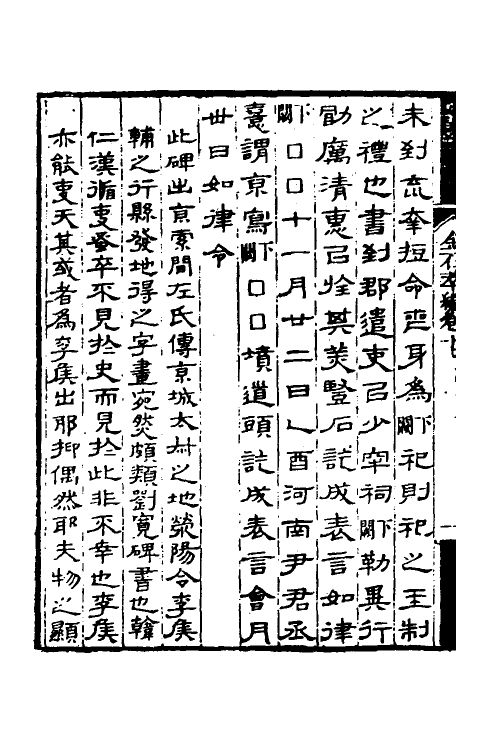 未到官奉短命喪身為下闕祀則祀之王制
之禮也書到郡遣吏㠯少牢祠下闕勒異行
勖厲清惠㠯旌其美豎石訖成表言如律
下闕囗囗十一月廿二日乙酉河南尹君丞
憙謂京寫下闕囗囗墳道頭訖成表言會月
卅日如律令
此碑出京索間左氏傳京城太叔之地滎陽令李侯
輔之行縣發地得之字畫宛然頗類劉寬碑書也韓
仁漢循吏蚤卒不見於史而見於此非不幸也李侯
亦能吏天其或者為李侯出耶抑偶然耶夫物之顯